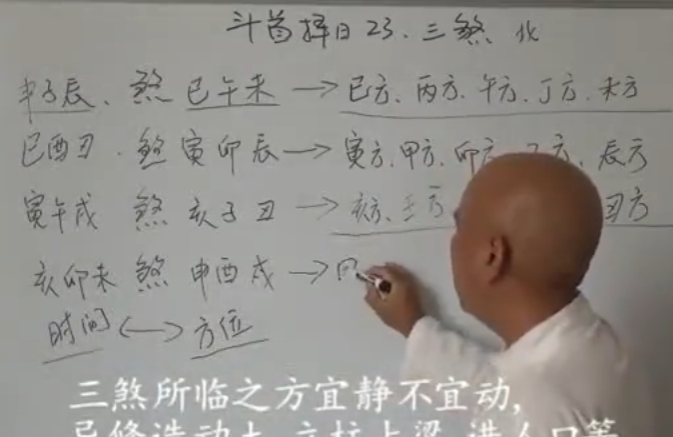 斗首择日23.三煞 北
申子辰、煞 巳午未→巳方、丙方、午方、丁方、未方
巳酉丑.煞 寅卯辰→寅方、甲方、卯方、乙方、辰方
寅午戌 煞 亥子丑→亥方、壬方 丑方
亥卯未 煞 申酉戌→
时间↔方位
三煞所临之方宜静不宜动,
忌修造动土,立柱上梁,进人口等